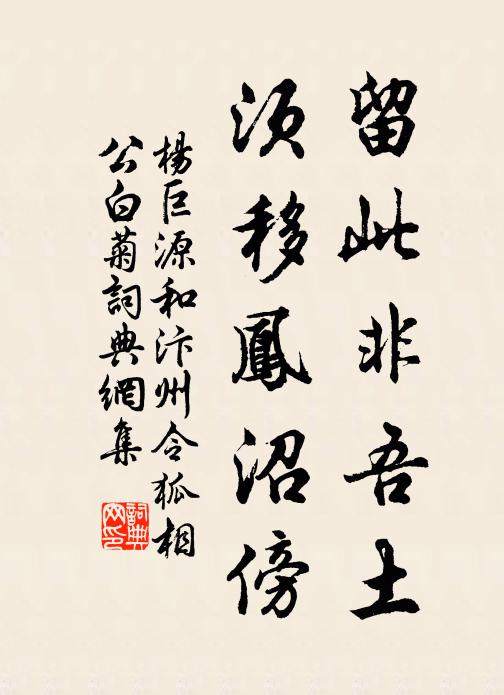 留此非吾土
須移鳳沼傍
楊巨源和汴州令狐相
公白菊詞典網集
詞典
网印